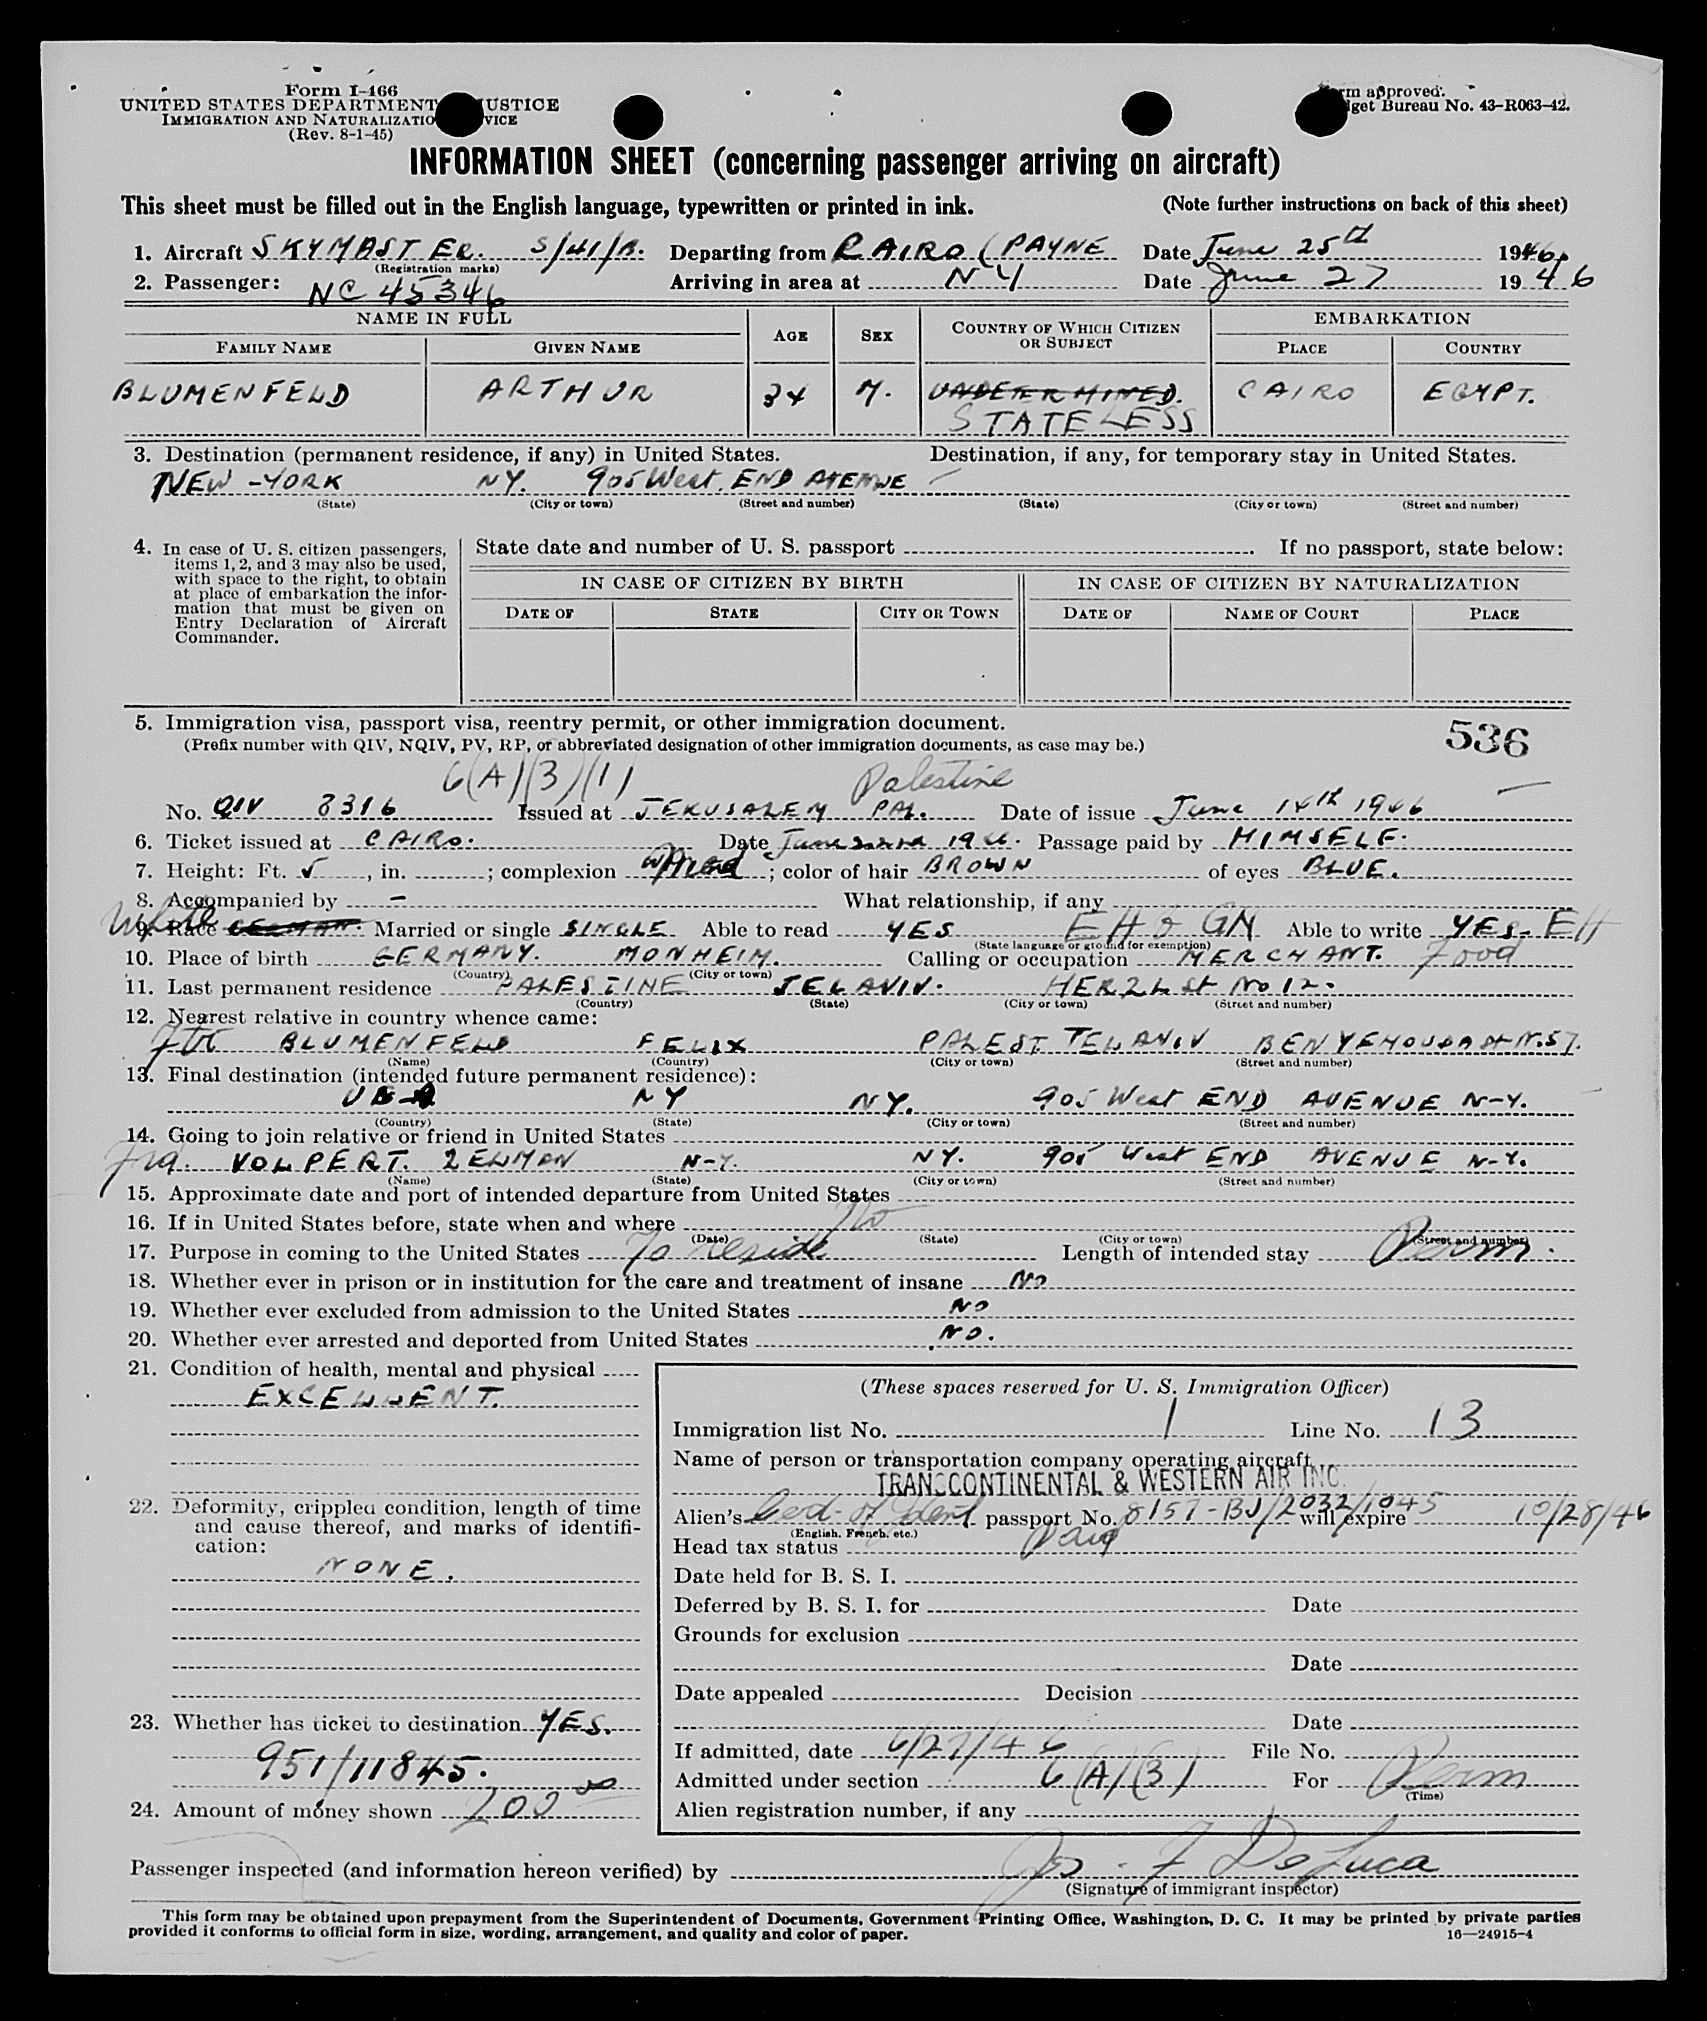 Form I-466
UNITED STATES DEPARTMENT JUSTICE
IMMIGRATION AND NATURALIZATIO VICE
(Rev. 8-1-45)
rm approved.
get Bureau No. 43-R063-42.
INFORMATION SHEET (concerning passenger arriving on aircraft)
This sheet must be filled out in the English language, typewritten or printed in ink. (Note further instructions on back of this sheet)
1. Aircraft SKYMASTER. Departing from CAIRO (PAYNE Date June 25th 1946.
(Registration marks)
2. Passenger: NC 45346 Arriving in area at NY Date June 27 1946
NAME IN FULL AGE SEX COUNTRY OF WHICH CITIZEN OR SUBJECT EMBARKATION
FAMILY NAME GIVEN NAME PLACE COUNTRY
BLUMENFELD ARTHUR 34 M. UNDETERMINED. CAIRO EGYPT.
STATELESS
3. Destination (permanent residence, if any) in United States. Destination, if any, for temporary stay in United States.
NEW-YORK NY. 905 West END AVENUE —
(State) (City or town) (Street and number) (State) (City or town) (Street and number)
4. In case of U. S. citizen passengers, items 1, 2, and 3 may also be used, with space to the right, to obtain at place of embarkation the information that must be given on Entry Declaration of Aircraft Commander.
State date and number of U. S. passport If no passport, state below:
IN CASE OF CITIZEN BY BIRTH IN CASE OF CITIZEN BY NATURALIZATION
DATE OF STATE CITY OR TOWN DATE OF NAME OF COURT PLACE
5. Immigration visa, passport visa, reentry permit, or other immigration document. 536
(Prefix number with QIV, NQIV, PV, RP, or abbreviated designation of other immigration documents, as case may be.)
6(A)(3)(1) Palestine
No. QIV 8316 Issued at JERUSALEM PAL. Date of issue June 14th 1946
6. Ticket issued at CAIRO. Date June 22nd 1946. Passage paid by HIMSELF.
7. Height: Ft. 5, in. ; complexion Med; color of hair BROWN of eyes BLUE.
8. Accompanied by — What relationship, if any
White
9. Race GERMAN. Married or single SINGLE Able to read YES EH & GN Able to write YES- EH
(State language or ground for exemption)
10. Place of birth GERMANY. MONHEIM. Calling or occupation MERCHANT. Food
(Country) (City or town)
11. Last permanent residence PALESTINE TELAVIV. HERZL st No 12.
(Country) (State) (City or town) (Street and number)
12. Nearest relative in country whence came:
BLUMENFELD FELIX PALEST. TELAVIV BEN YEHOUDA st N. 57.
(Name) (Country) (City or town) (Street and number)
13. Final destination (intended future permanent residence):
USA NY NY. 905 West END AVENUE N-Y.
(Country) (State) (City or town) (Street and number)
14. Going to join relative or friend in United States
Frd. VOLPERT. ZELMAN N-Y. NY. 905 West END AVENUE N-Y.
(Name) (State) (City or town) (Street and number)
15. Approximate date and port of intended departure from United States
16. If in United States before, state when and where No
(Date) (State) (City or town) (Street and number)
17. Purpose in coming to the United States To reside Length of intended stay Perm.
18. Whether ever in prison or in institution for the care and treatment of insane No
19. Whether ever excluded from admission to the United States NO
20. Whether ever arrested and deported from United States NO.
21. Condition of health, mental and physical
EXCELLENT.
22. Deformity, crippled condition, length of time and cause thereof, and marks of identification:
NONE.
23. Whether has ticket to destination YES.
951/11845.
24. Amount of money shown 200 00
(These spaces reserved for U. S. Immigration Officer)
Immigration list No. 1 Line No. 13
Name of person or transportation company operating aircraft
TRANSCONTINENTAL & WESTERN AIR INC.
Alien's Cert. of Ident passport No. 8157-BJ/2032/1045 will expire 10/28/46
(English, French, etc.)
Head tax status Paid
Date held for B. S. I.
Deferred by B. S. I. for Date
Grounds for exclusion
Date
Date appealed Decision
Date
If admitted, date 6/27/46 File No.
Admitted under section 6(A)(3) For Perm
(Time)
Alien registration number, if any
Passenger inspected (and information hereon verified) by Jos. F DeLuca
(Signature of immigrant inspector)
This form may be obtained upon prepayment from the Superintendent of Documents, Government Printing Office, Washington, D. C. It may be printed by private parties
provided it conforms to official form in size, wording, arrangement, and quality and color of paper. 16—24915-4